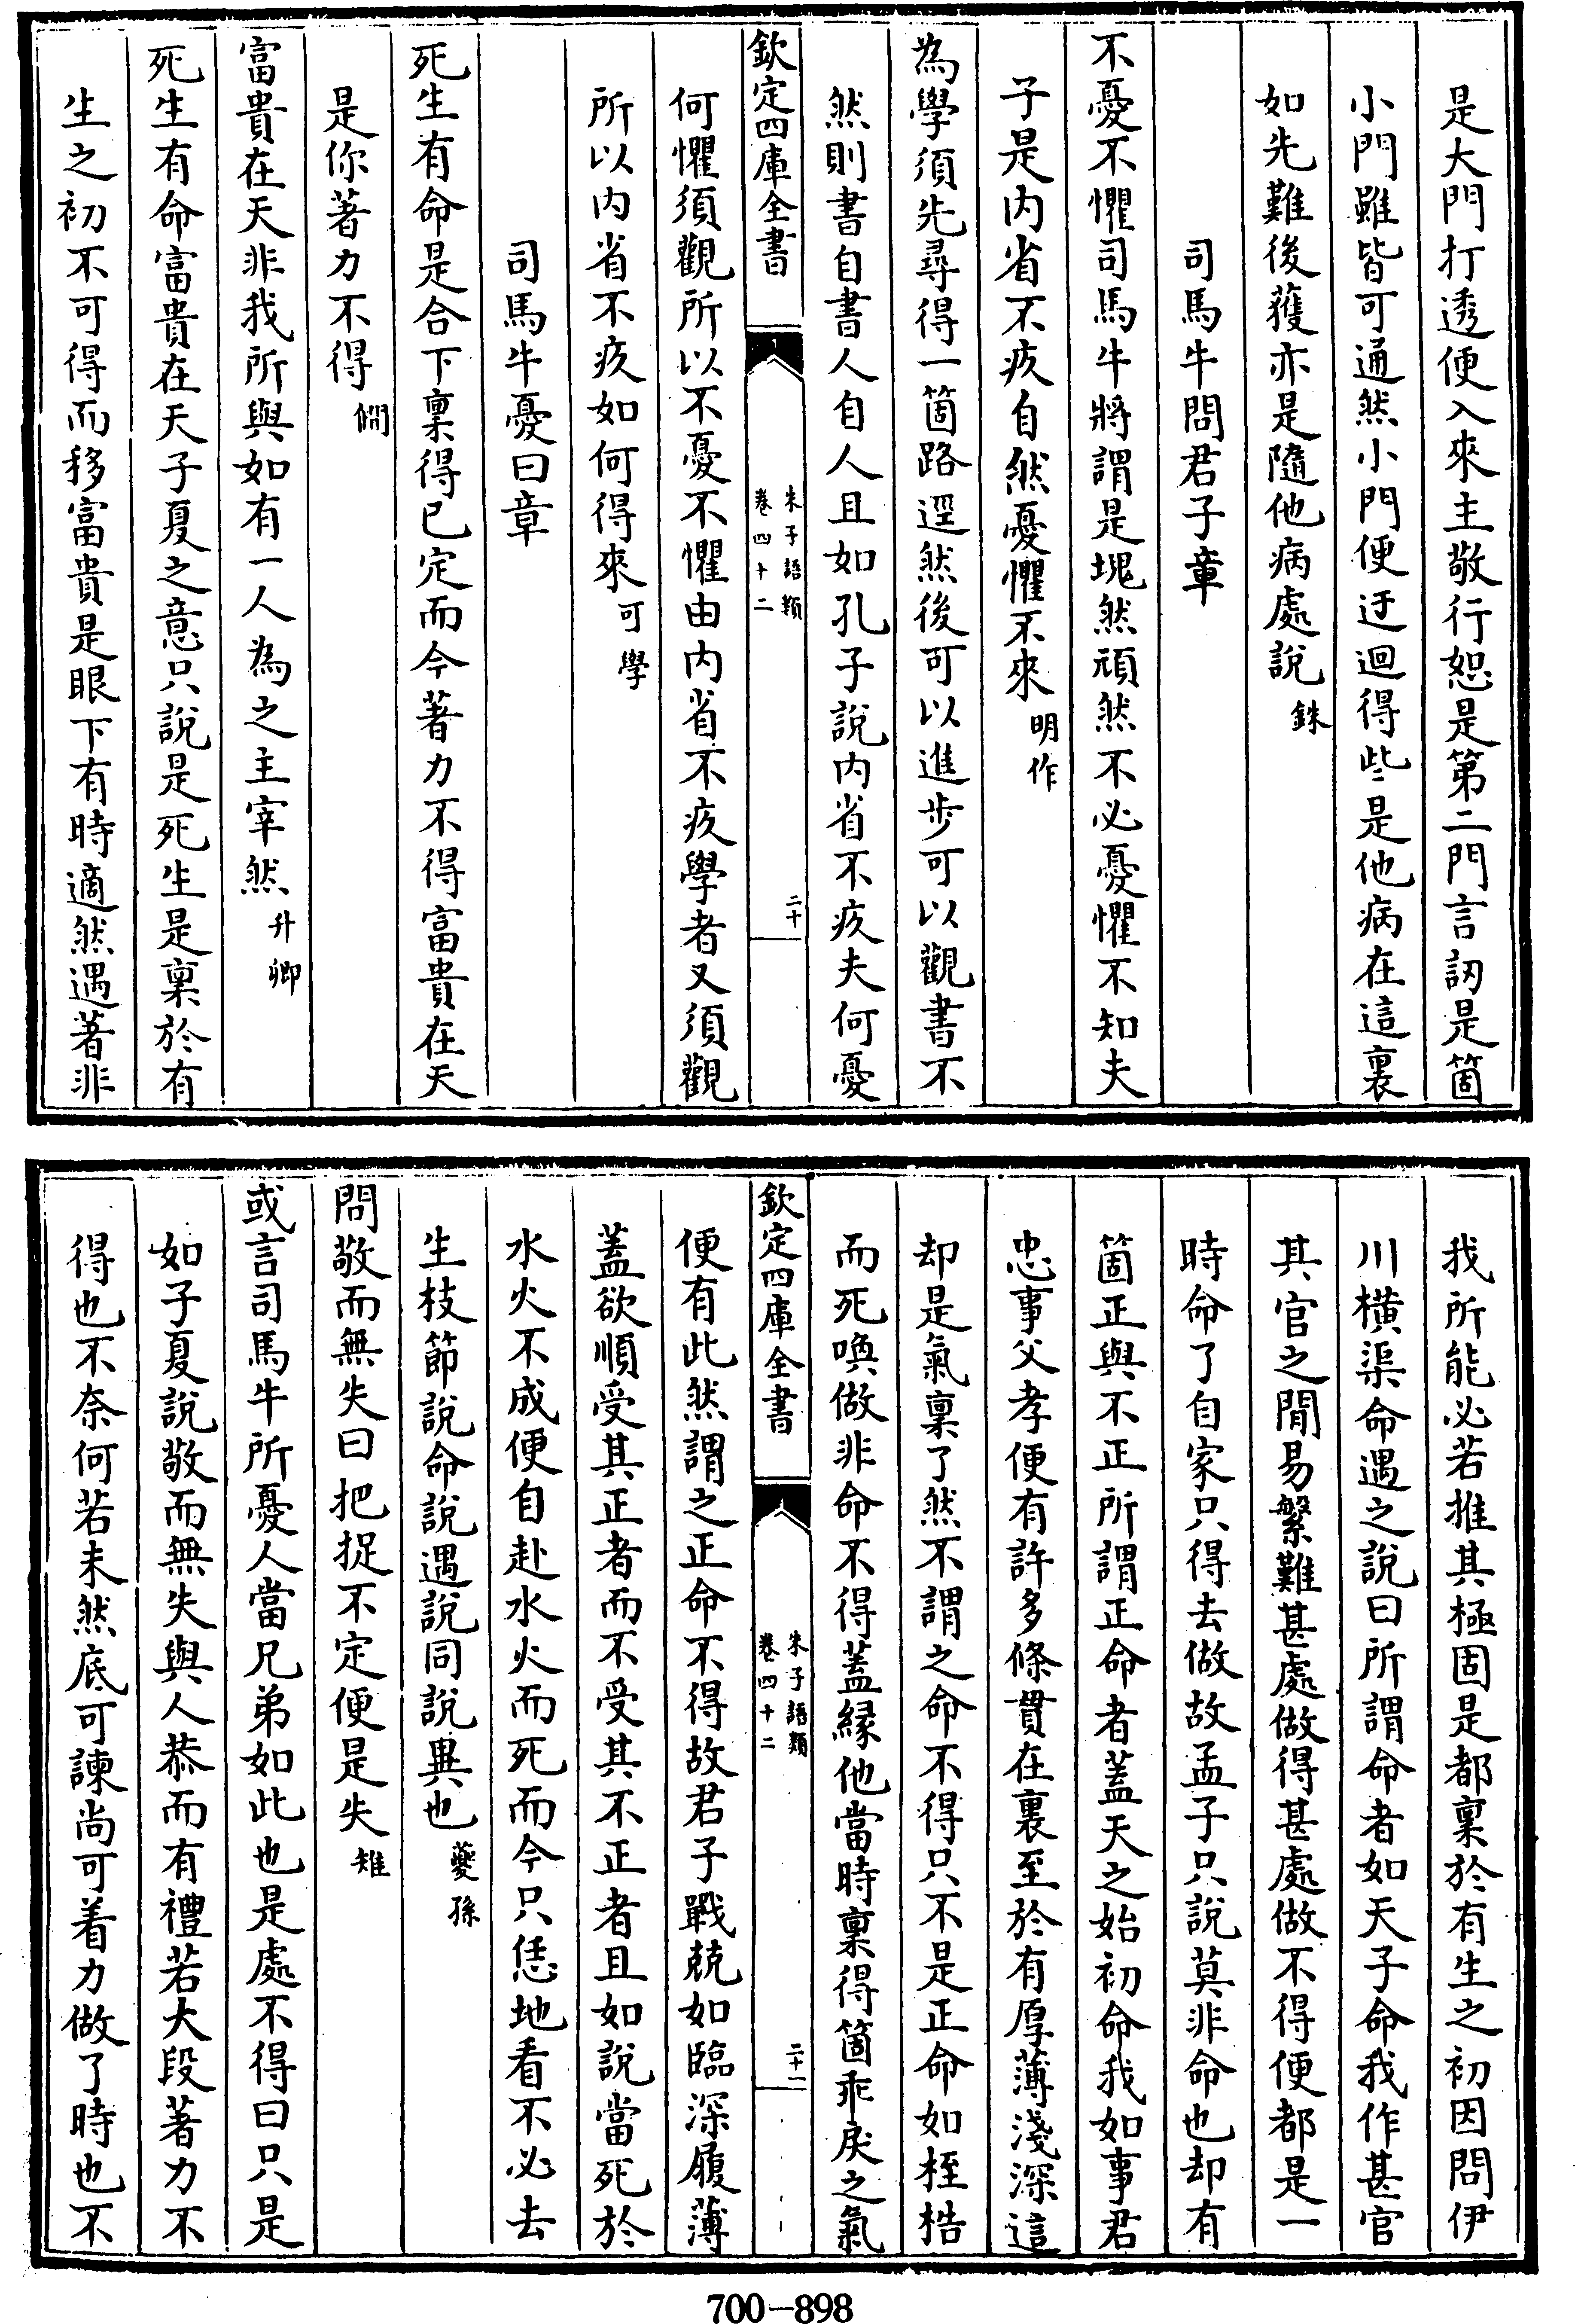 是大門打透便入來主敬行恕是第二門言訒是箇
小門雖皆可通然小門便迂迴得些是他病在這裏
如先難後獲亦是隨他病處說銖
司馬牛問君子章
不憂不懼司馬牛將謂是塊然頑然不必憂懼不知夫
子是内省不疚自然憂懼不來明作
為學須先尋得一箇路逕然後可以進步可以觀書不
然則書自書人自人且如孔子說内省不疚夫何憂
欽定四庫全書
朱子語類
卷四十二
二十
何懼須觀所以不憂不懼由内省不疚學者又須觀
所以内省不疚如何得來可學
司馬牛憂曰章
死生有命是合下稟得已定而今著力不得富貴在天
是你著力不得僩
富貴在天非我所與如有一人為之主宰然升卿
死生有命富貴在天子夏之意只說是死生是稟於有
生之初不可得而移富貴是眼下有時適然遇著非
我所能必若推其極固是都稟於有生之初因問伊
川橫渠命遇之說曰所謂命者如天子命我作甚官
其官之閒易繁難甚處做得甚處做不得便都是一
時命了自家只得去做故孟子只說莫非命也却有
箇正與不正所謂正命者蓋天之始初命我如事君
忠事父孝便有許多條貫在裏至於有厚薄淺深這
却是氣稟了然不謂之命不得只不是正命如桎梏
而死喚做非命不得蓋緣他當時稟得箇乖戾之氣
欽定四庫全書
朱子語類
卷四十二
二十一
便有此然謂之正命不得故君子戰兢如臨深履薄
蓋欲順受其正者而不受其不正者且如說當死於
水火不成便自赴水火而死而今只恁地看不必去
生枝節說命說遇說同說異也䕫孫
問敬而無失曰把捉不定便是失雉
或言司馬牛所憂人當兄弟如此也是處不得曰只是
如子夏說敬而無失與人恭而有禮若大段著力不
得也不奈何若未然底可諫尚可着力做了時也不
700-898